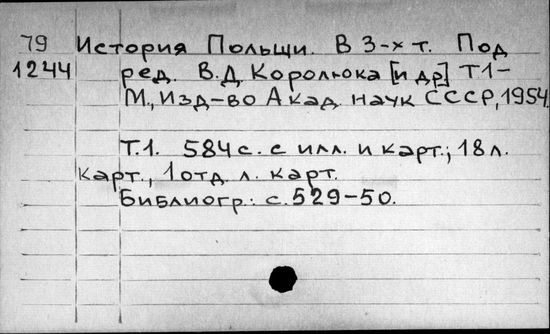 79 История Польщи. В 3-х т. Под
1244 ред. В.Д. Королюка [и др.] Т.1-
М., Изд-во Акад. наук СССР, 1954.
Т.1. 584 с. с илл. и карт.; 18 л.
карт., 1 отд. л. карт.
Библиогр.: с. 529-50.